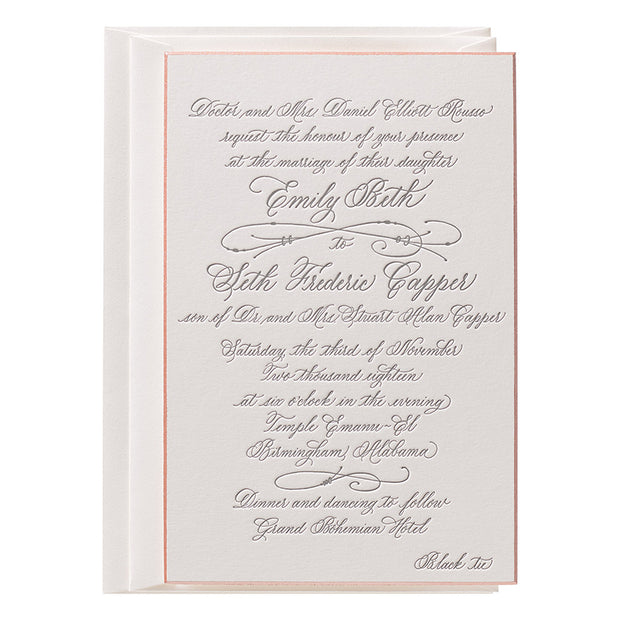 Doctor and Mrs. Daniel Elliott Rousso
request the honour of your presence
at the marriage of their daughter
Emily Beth
to
Seth Frederic Capper
son of Dr. and Mrs. Stuart Alan Capper
Saturday, the third of November
Two thousand eighteen
at six o'clock in the evening
Temple Emanu-El
Birmingham, Alabama
Dinner and dancing to follow
Grand Bohemian Hotel
Black tie